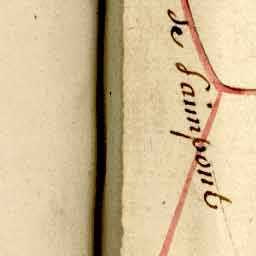 de Saimpont